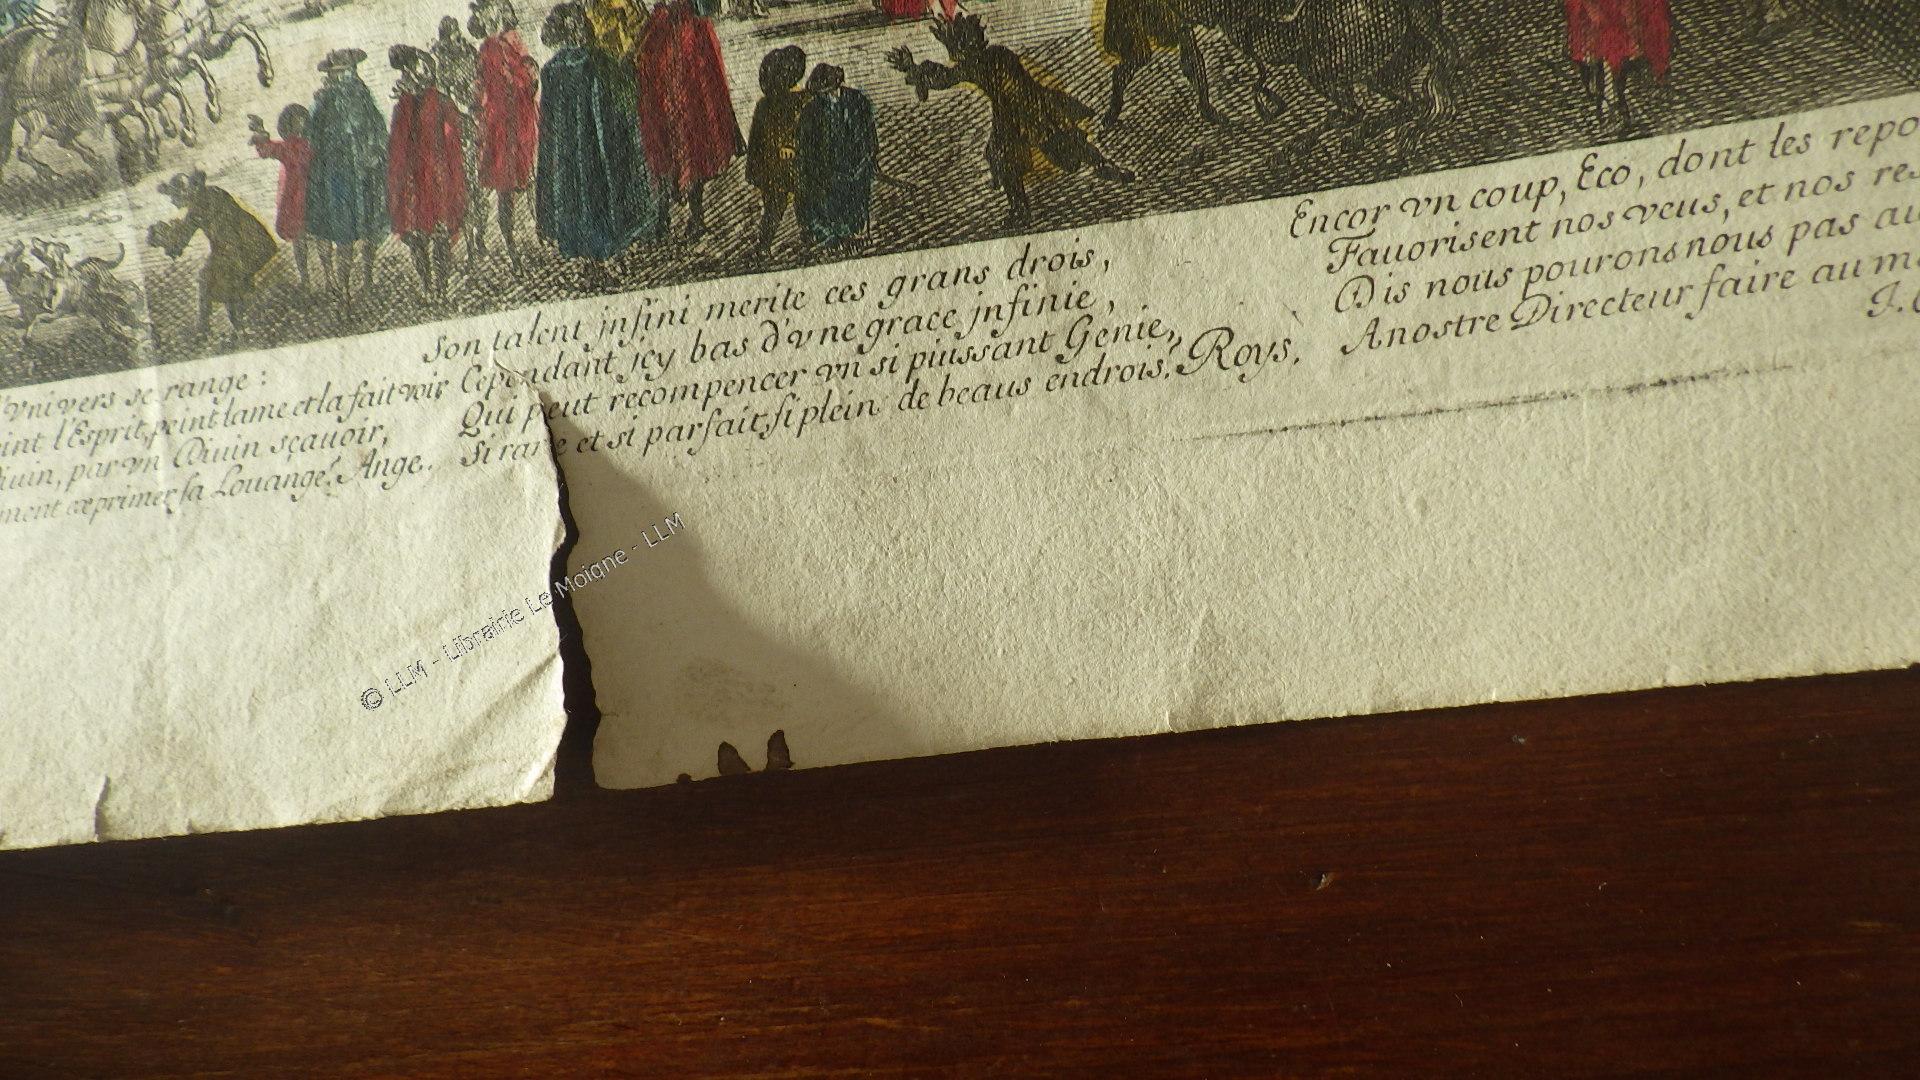 Vnivers se range :
l'Esprit, peint lame et la fait voir
par vn Diuin sçauoir,
exprimer sa Louange? Ange.
Son talent jnfini merite ces grans drois,
Cependant jcy bas d'vne grace jnfinie,
Qui peut recompencer vn si piussant Genie,
Si rare et si parfait, si plein de beaus endrois? Roys.
Encor vn coup, Eco, dont les
Fauorisent nos veus, et nos
Dis nous pourons nous pas
Anostre Directeur faire au
J.
© LLM - Librairie Le Moigne - LLM